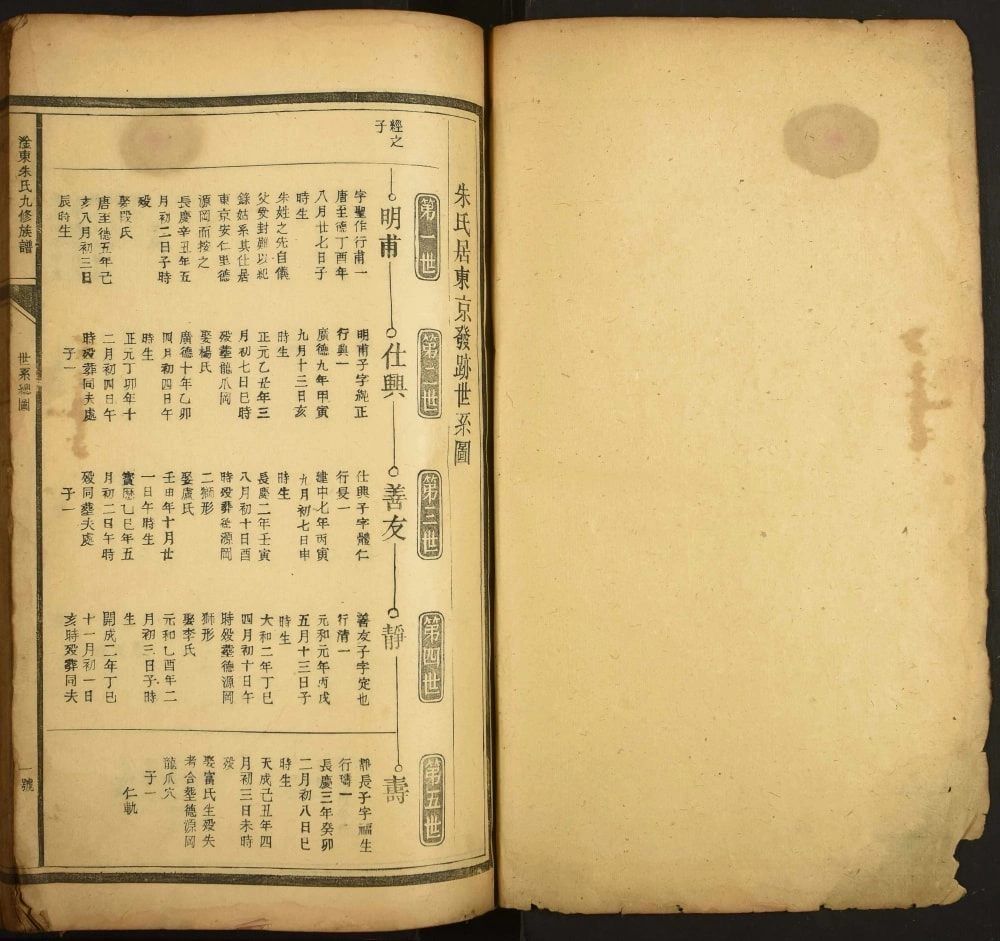 朱氏居東京發跡世系圖
第一世
經之
子
明甫
字聖作行甫一
唐至德丁酉年
八月廿七日子
時生
朱姓之先自儀
父受封難以紀
錄姑系其仕居
東京安仁里德
源岡而按之
長慶辛丑年五
月初二日子時
歿
娶段氏
唐至德五年己
亥八月初三日
辰時生
第二世
仕興
明甫子字純正
行興一
廣德九年甲寅
九月十三日亥
時生
正元乙丑年三
月初七日巳時
歿塟龍爪岡
娶楊氏
廣德十年乙卯
四月初四日午
時生
正元丁卯年十
二月初四日午
時歿葬同夫處
子一
第三世
善友
仕興子字體仁
行叟一
建中七年丙寅
九月初七日申
時生
長慶二年壬寅
八月初十日酉
時歿葬德源岡
二獅形
娶盧氏
壬申年十月廿
一日午時生
寶歷乙巳年五
月初二日午時
歿同塟夫處
子一
第四世
靜
善友子字定也
行清一
元和元年丙戌
五月十三日子
時生
大和二年丁巳
四月初十日午
時歿塟德源岡
獅形
娶李氏
元和乙酉年二
月初三日子時
生
開成二年丁巳
十一月初一日
亥時歿葬同夫
第五世
壽
靜長子字福生
行璹一
長慶三年癸卯
二月初八日巳
時生
天成己丑年四
月初三日未時
歿
娶富氏生歿失
考合塟德源岡
龍爪穴
子一
仁軌
東朱氏九修族譜
世系總圖
一號